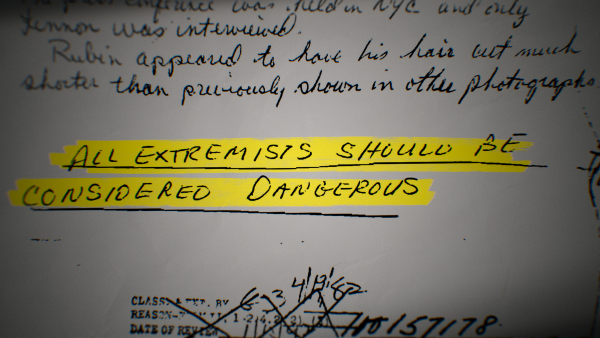 press conference was held in NYC and only
Lennon was interviewed.
Rubin appeared to have his hair cut much
shorter than previously shown in other photographs
ALL EXTREMISTS SHOULD BE
CONSIDERED DANGEROUS
CLASS & EXT. BY
REASON
DATE OF REVIEW